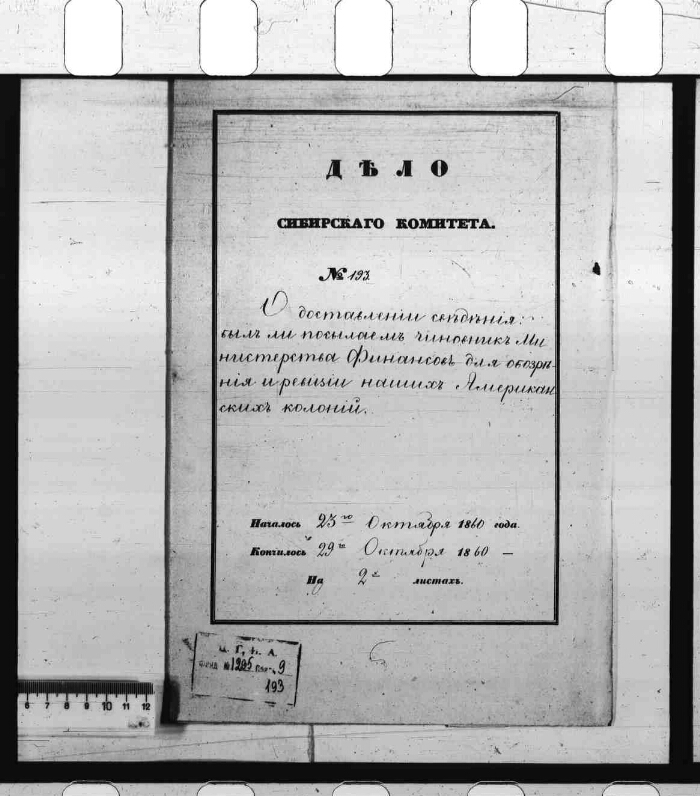 ДѢЛО
СИБИРСКАГО КОМИТЕТА.
№ 193.
О доставленіи свѣдѣнія:
былъ ли посылаемъ чиновникъ Ми
нистерства Финансовъ для обозрѣ-
нія и ревизіи нашихъ Американ
скихъ колоній.
Началось 23го Октября 1860 года.
Кончилось 29го Октября 1860 —
На 2х листахъ.
Ц. Г. И. А.
ФОНД № 1265 9
193
6 7 8 9 10 11 12